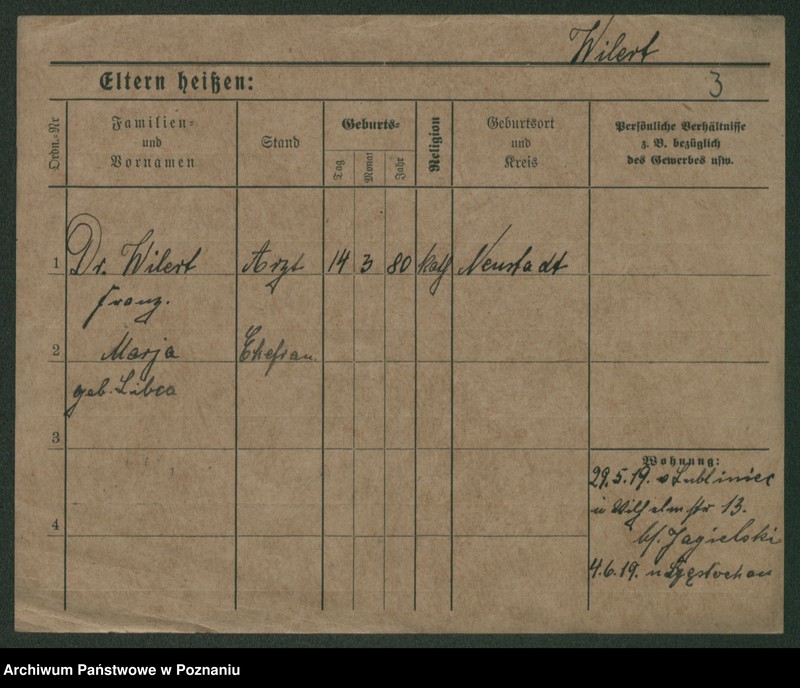 Wilert
Eltern heißen:
3
Ordn.-Nr
Familien-
und
Vornamen
Stand
Geburts-
Tag
Monat
Jahr
Religion
Geburtsort
und
Kreis
Persönliche Verhältnisse
z. B. bezüglich
des Gewerbes usw.
1 Dr. Wilert Arzt 14 3 80 kath Neustadt
Franz.
2 Marja Ehefrau
geb. Libca
3
Wohnung:
29.5.19. v Lubliniec
in Wilhelmstr 13.
4 bf. Jagielski
4.6.19. n Częstochau
Archiwum Państwowe w Poznaniu